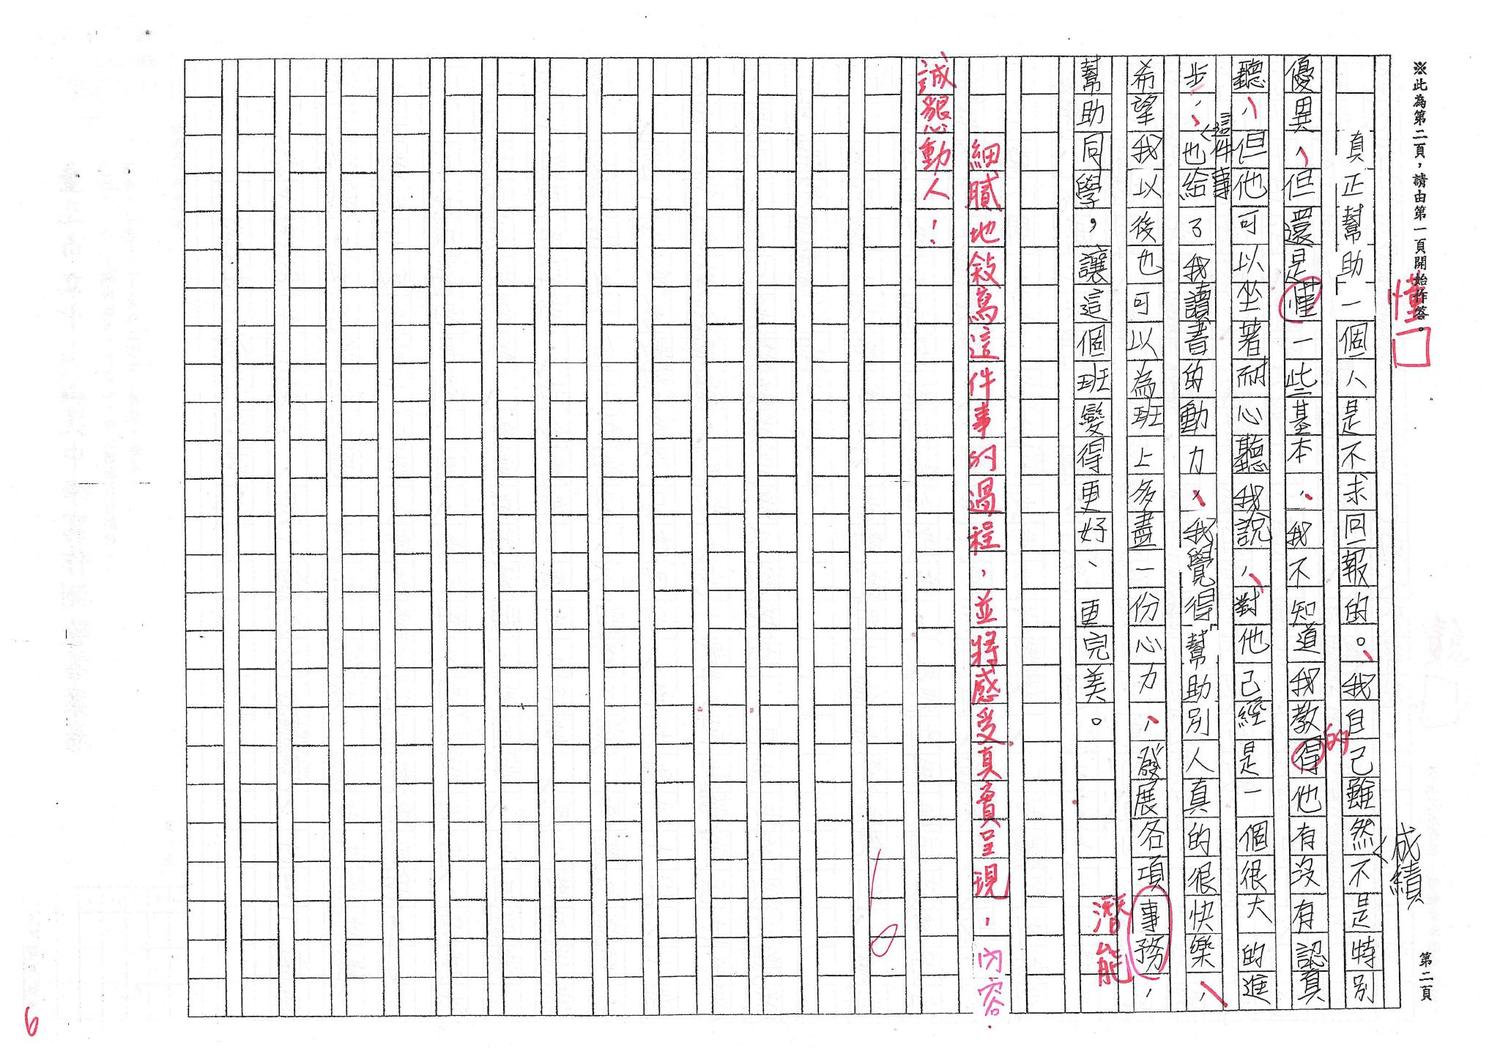 ※此為第二頁，請由第一頁開始作答。
第二頁
懂
真正幫助一個人是不求回報的。我自己雖然不是特別
成績
優異，但還是懂一些基本，我不知道我教得他有沒有認真
的
聽，但他可以坐著耐心聽我說，對他己經是一個很大的進
步，也給了我讀書的動力，我覺得幫助別人真的很快樂，
這件事
希望我以後也可以為班上多盡一份心力，發展各項事務，
潛能
幫助同學，讓這個班變得更好、更完美。
細膩地敘寫這件事的過程，並將感受真實呈現，內容
誠懇動人！
10
6